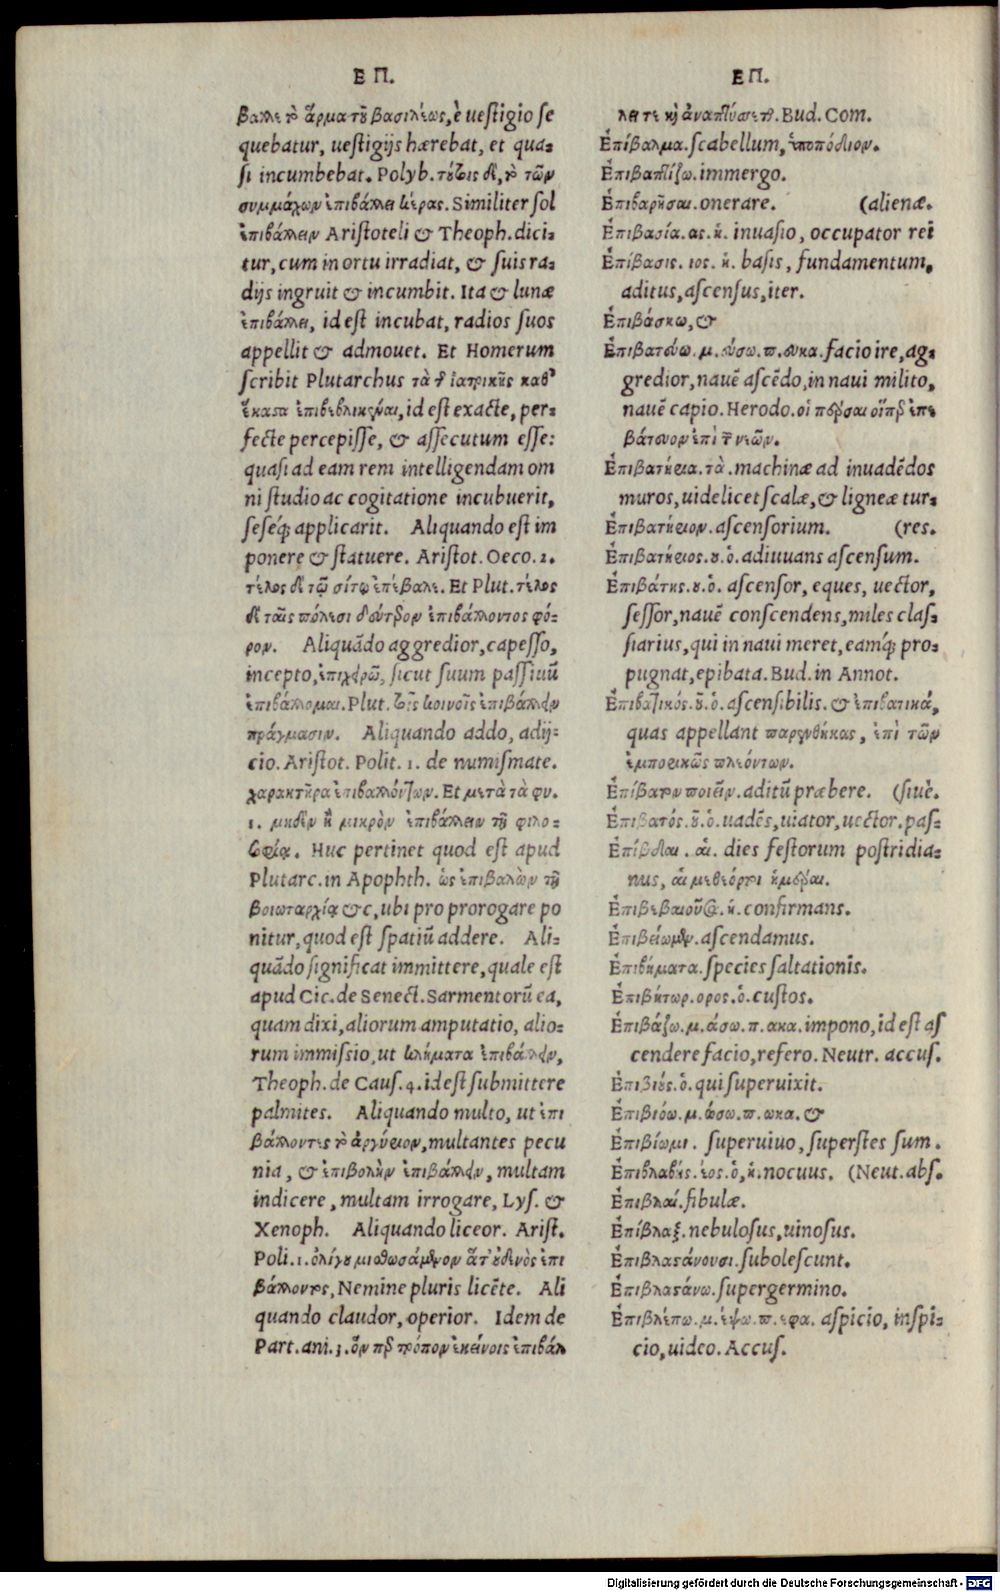 ΕΠ.
βαλλε τὸ ἅρμα τοῦ βασιλέως, è uestigio se
quebatur, uestigijs hærebat, et qua-
si incumbebat. Polyb. τούτοις δὲ, τὸ τῶν
συμμάχων ἐπιβάλλει κέρας. Similiter sol
ἐπιβάλλειν Aristoteli & Theoph. dici-
tur, cum in ortu irradiat, & suis ra-
dijs ingruit & incumbit. Ita & lunæ
ἐπιβάλλει, id est incubat, radios suos
appellit & admouet. Et Homerum
scribit Plutarchus τὰ τῆς ἰατρικῆς καθ'
ἕκαστα ἐπιβεβληκέναι, id est exacte, per-
fecte percepisse, & assecutum esse:
quasi ad eam rem intelligendam om
ni studio ac cogitatione incubuerit,
seseq; applicarit. Aliquando est im
ponere & statuere. Aristot. Oeco. 2.
τέλος δὲ τῷ σίτῳ ἐπέβαλε. Et Plut. τέλος
δὲ ταῖς πόλεσι δεύτερον ἐπιβάλλοντος φό-
ρον. Aliquãdo aggredior, capesso,
incepto, ἐπιχειρῶ, sicut suum passiuũ
ἐπιβάλλομαι. Plut. τοῖς κοινοῖς ἐπιβάλλειν
πράγμασιν. Aliquando addo, adij-
cio. Aristot. Polit. 1. de numismate.
χαρακτῆρα ἐπιβαλλόντων. Et μετὰ τὰ φυ.
1. μηδὲν ἢ μικρὸν ἐπιβάλλειν τῇ φιλο-
σοφίᾳ. Huc pertinet quod est apud
Plutarc. in Apophth. ὡς ἐπιβαλὼν τῇ
βοιωταρχίᾳ &c, ubi pro prorogare po
nitur, quod est spatiũ addere. Ali-
quãdo significat immittere, quale est
apud Cic. de Senect. Sarmentorũ ea,
quam dixi, aliorum amputatio, alio-
rum immissio, ut κλήματα ἐπιβάλλειν,
Theoph. de Caus. 4. id est submittere
palmites. Aliquando multo, ut ἐπι
βάλλοντες τὸ ἀργύριον, multantes pecu
nia, & ἐπιβολὴν ἐπιβάλλειν, multam
indicere, multam irrogare, Lys. &
Xenoph. Aliquando liceor. Arist.
Poli. 1. ὀλίγου μισθωσάμενον ἅτ' οὐδενὸς ἐπι
βάλλοντος, Nemine pluris licẽte. Ali
quando claudor, operior. Idem de
Part. ani. 3. ὃν περ τρόπον ἐκείνοις ἐπιβάλ
ΕΠ.
λει τε καὶ ἀναπτύσσεται. Bud. Com.
Ἐπίβαλμα. scabellum, ὑποπόδιον.
Ἐπιβαπτίζω. immergo.
Ἐπιβαρῆσαι. onerare. (alienæ.
Ἐπιβασία. ας. ἡ. inuasio, occupator rei
Ἐπίβασις. ιος. ἡ. basis, fundamentum,
aditus, ascensus, iter.
Ἐπιβάσκω, &
Ἐπιβατεύω. μ. εύσω. π. ευκα. facio ire, ag-
gredior, nauẽ ascẽdo, in naui milito,
nauẽ capio. Herodo. οἱ πέρσαι οἵπερ ἐπε
βάτευον ἐπὶ τῶν νεῶν.
Ἐπιβατήρια. τὰ. machinæ ad inuadẽdos
muros, uidelicet scalæ, & ligneæ tur-
Ἐπιβατήριον. ascensorium. (res.
Ἐπιβατήριος. ου. ὁ. adiuuans ascensum.
Ἐπιβάτης. ου. ὁ. ascensor, eques, uector,
sessor, nauẽ conscendens, miles clas-
siarius, qui in naui meret, eamq; pro-
pugnat, epibata. Bud. in Annot.
Ἐπιβατικός. οῦ. ὁ. ascensibilis. & ἐπιβατικά,
quas appellant παρενθήκας, ἐπὶ τῶν
ἐμπορικῶς πλεόντων.
Ἐπίβατον ποιεῖν. aditũ præbere. (siuè.
Ἐπιβατός. οῦ. ὁ. uadẽs, uiator, uector. pas-
Ἐπίβδαι. αἱ. dies festorum postridia-
nus, αἱ μεθέορτοι ἡμέραι.
Ἐπιβεβαιοῦσα. ἡ. confirmans.
Ἐπιβείωμεν. ascendamus.
Ἐπιβήματα. species saltationis.
Ἐπιβήτωρ. ορος. ὁ. custos.
Ἐπιβάζω. μ. άσω. π. ακα. impono, id est as
cendere facio, refero. Neutr. accus.
Ἐπιβιούς. ὁ. qui superuixit.
Ἐπιβιόω. μ. ώσω. π. ωκα. &
Ἐπιβίωμι. superuiuo, superstes sum.
Ἐπιβλαβής. έος. ὁ, ἡ. nocuus. (Neut. abs.
Ἐπιβλαί. fibulæ.
Ἐπίβλαξ. nebulosus, uinosus.
Ἐπιβλαστάνουσι. subolescunt.
Ἐπιβλαστάνω. supergermino.
Ἐπιβλέπω. μ. έψω. π. εφα. aspicio, inspi-
cio, uideo. Accus.
Digitalisierung gefördert durch die Deutsche Forschungsgemeinschaft - DFG